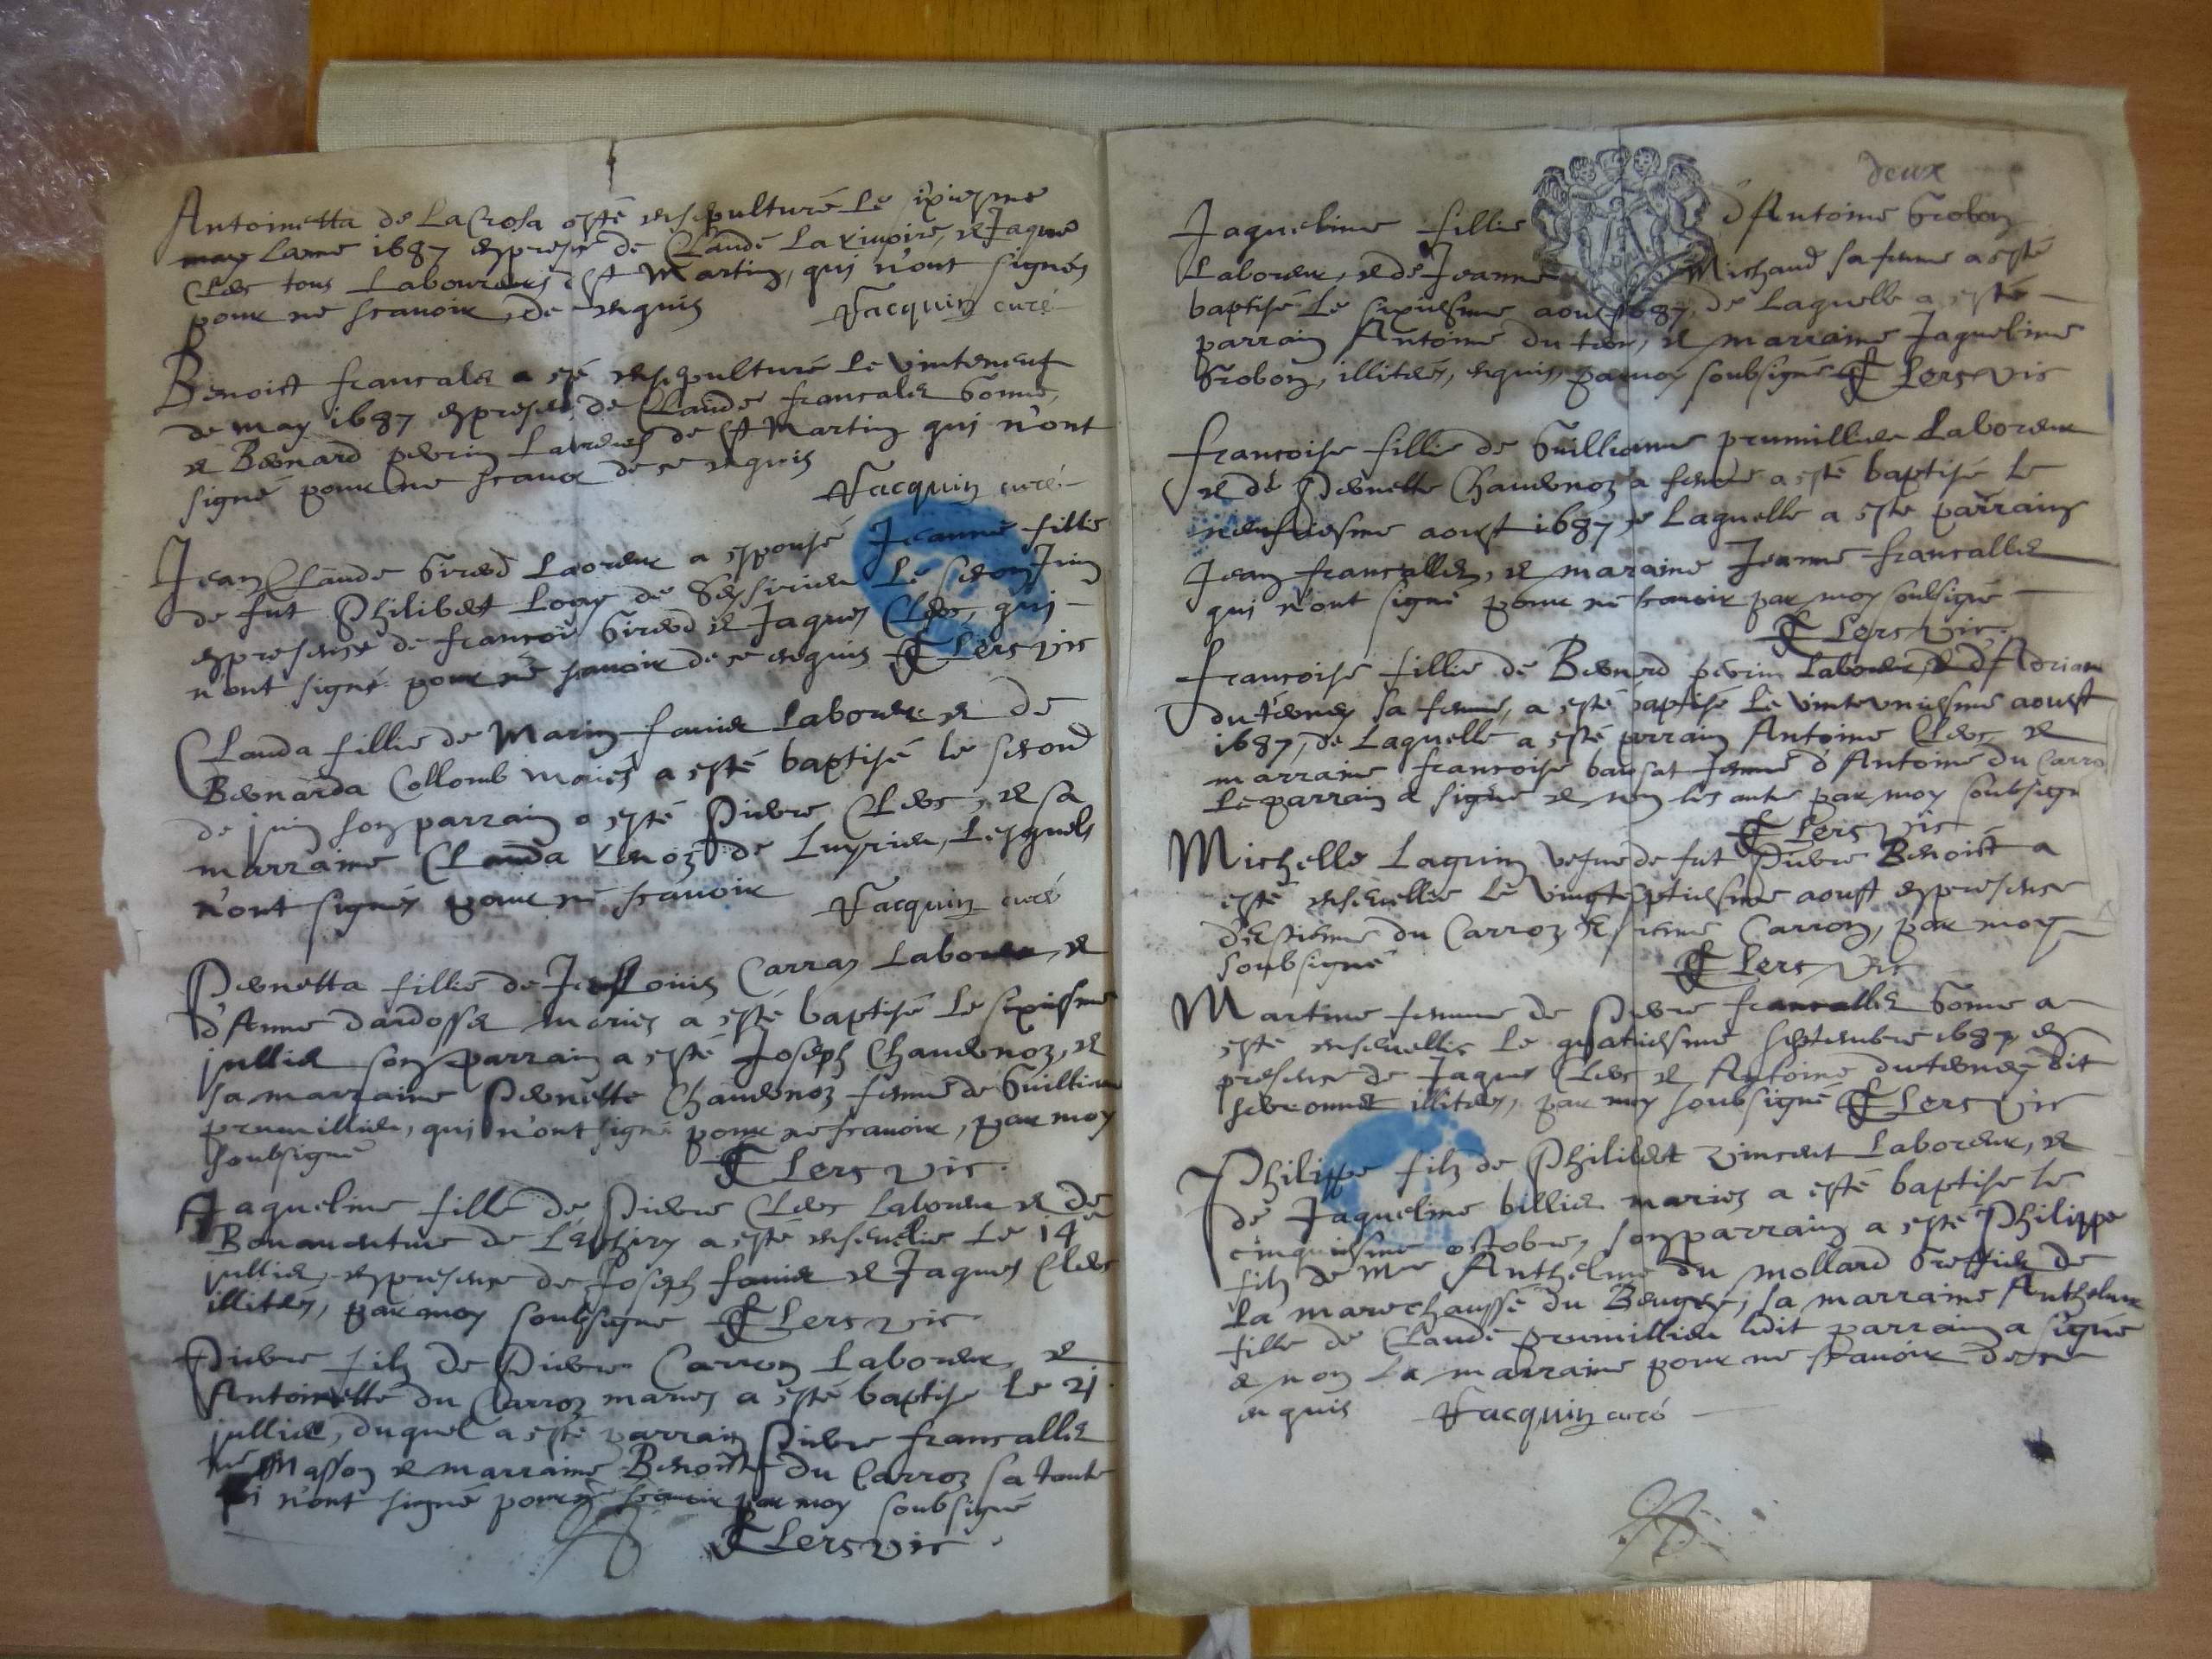 Antoinetta de La Crosa esté ensepulturé Le sixiesme
may Lanne 1687 expresence de Claude La vinoire, et Jaque
Clerc tous Laboureurs d St Martin, qui n'ont signés
pour ne scavoir, de enquis Jacquin curé
Benoist francalet a esté ensepulturé Le vinteneuf
de may 1687 expresence de Claude francalet
et Bernard perrin Laboreurs de St Martin qui n'ont
signé pour ne scavoir de ce enquis
Jacquin curé
Jean Claude Girerd Laboreur a espousé Jeanne fillie
de fut Philibert de Seyssirieu Le second Juin
expresence de francois Girerd et Jaques Clerc, qui
n'ont signé pour ne scavoir de ce enquis Clerc vic
Clauda fillie de Marin favier Laboureur et de
Bernarda Collomb mariés a esté baptisé le second
de juin son parrain a esté Pierre Clerc, et sa
marraine Clauda de Luyrieu, Lesquels
n'ont signés pour ne scavoir Jacquin curé
Pernetta fillie de Jean Louis Carraz Laboreur, et
d'Anne dardosset mariez a esté baptisé Le sixiesme
jullier son parrain a esté Joseph Chaudenoz, et
sa marraine Pernette Chaudenoz femme de Guilliaume
prumillieu, qui n'ont signé pour ne scavoir, par moy
soubsigné
Clerc vic
Jaqueline fille de Pierre Clerc Laboreur et de
Bonaventure de a esté ensevelie Le 14e
jullier, expresence de Joseph favier et Jaques Clerc
illiterés, par moy soubsigne Clerc vic
Pierre filz de Pierre Carron Laboreur, et
Antoinette du Carroz mariez a esté baptisé le 21
jullier, duquel a esté parrain Pierre francallet
Me Masson et marraine Benoiste du Carroz sa tante
qui n'ont signé pour ne scavoir par moy soubsigné
Clerc vic
deux
Jaqueline fillie d'Antoine Grobon
Laboreur, et de Jeanne Michaud sa femme a esté
baptisé Le sixiesme aoust 1687, de Laquelle a esté
parrain Antoine du, et marraine Jaqueline
Grobon, illiterés, enquis, par moy soubsigné Clerc vic
francoise fillie de Guillianme prumillieu Laboreur
et de Pernette Chaudenoz sa femme a esté baptisé Le
neufviesme aoust 1687, de Laquelle a esté parrain
Jean francallet, et maraine Jeanne francallet
qui n'ont signé pour ne scavoir par moy soubsigné
Clerc vic
francoise fillie de Bernard perrin Laboreur, et d'Adriane
du terney sa femme, a esté baptisé Le vinteuniesme aoust
1687, de Laquelle a esté parrain Antoine Clerc et
marraine francoise femme d'Antoine du Carro
Le parrain a signé et non les autre par moy soubsigne
Clerc vic
Michelle Laquin vefve de fut Pierre Benoist a
esté ensevellie Le vingtseptiesme aoust expresence
d'Estienne du Carroz et Carron, par moy
soubsigné Clerc vic
Martine femme de Pierre francallet a
esté ensevellie Le quatriesme septembre 1687, en
presence de Jaque Clerc et Antoine duterney dit
illiterés, par moy soubsigné Clerc vic
Philippe filz de Philibert vincent Laboreur, et
de Jaqueline billiet mariez a esté baptise le
cinquiesme octobre, son parrain a esté Philippe
filz de Me Anthelme du mollard Greffier de
La marechaussé du Beugey, sa marraine Anthelme
fille de Claude prumillieu ledit parrain a signé
et non La marraine pour ne scavoir de ce
enquis Jacquin curé